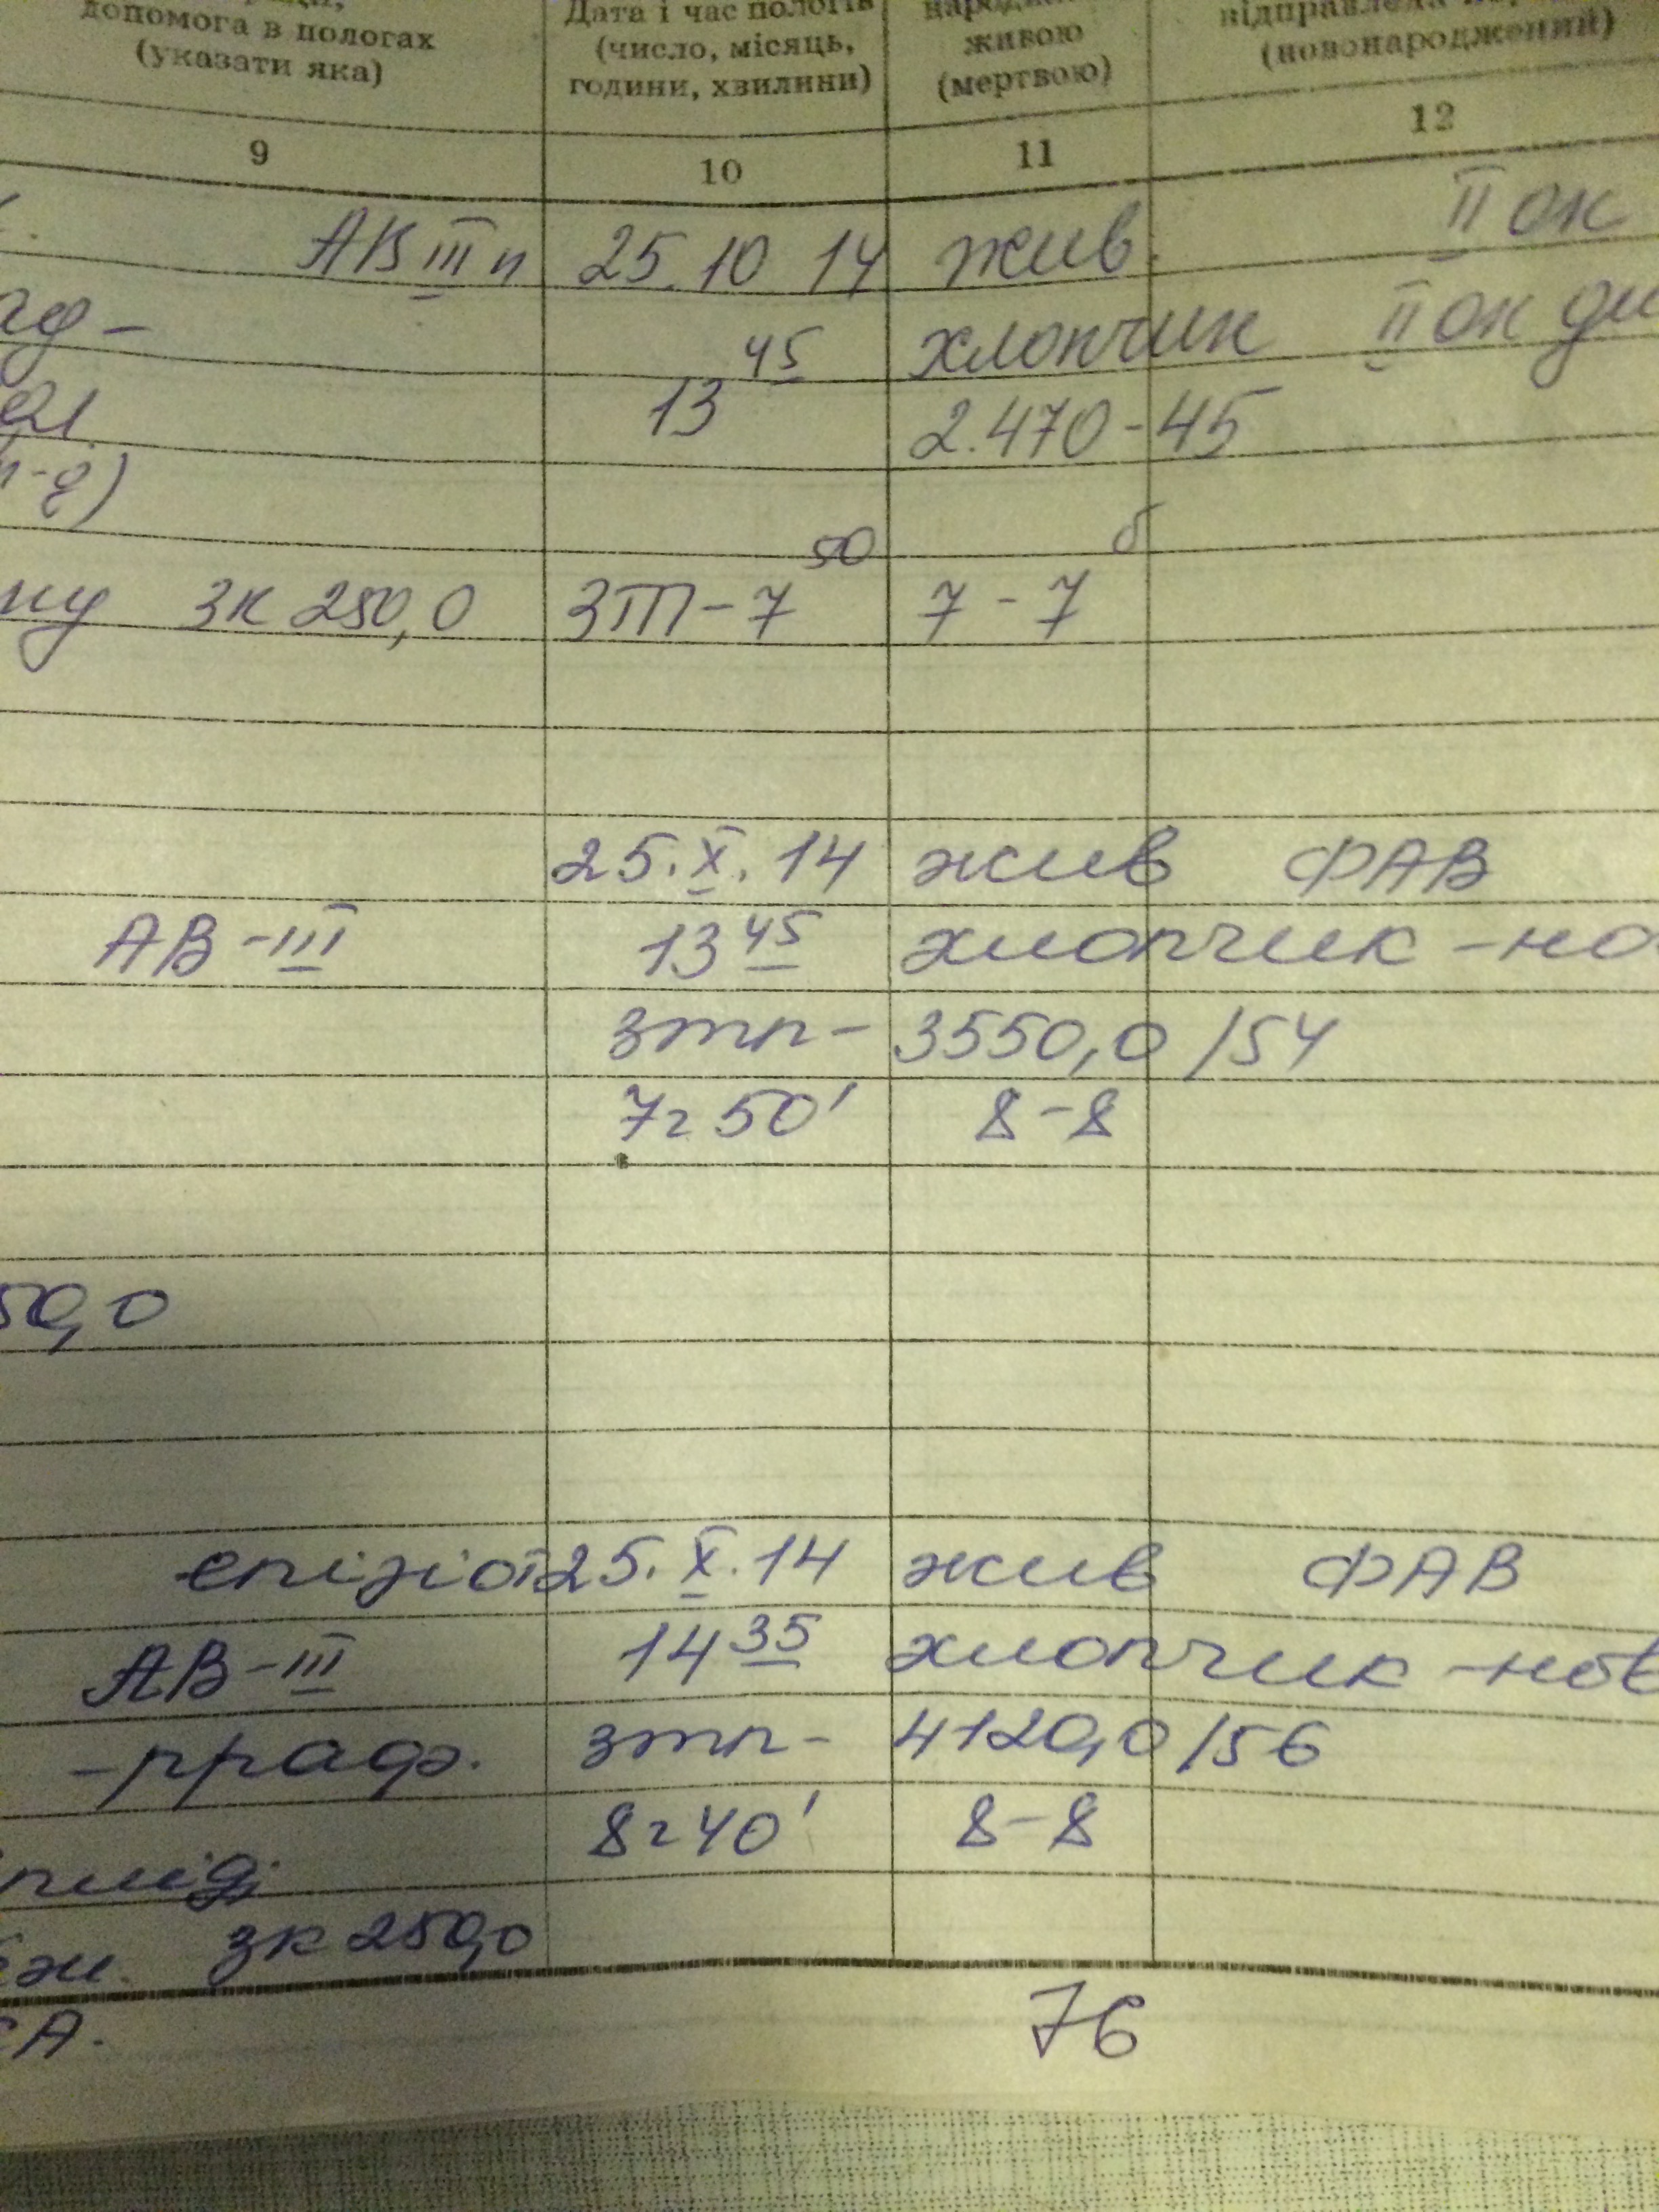 допомога в пологах
(указати яка)
Дата і час пологів
(число, місяць,
години, хвилини)
живою
(мертвою)
відправлена
(новонароджений)
9 10 11 12
АВ III п 25.10 14 жив. II ок
ад- 13 45 хлопчик II ок ди
2.470-45
50 б
ну зк 250,0 ЗТП-7 7-7
25.X.14 жив ФАВ
АВ-III 13 45 хлопчик -но
зтп- 3550,0 /54
7г 50' 8-8
50,0
епізіот 25.X.14 жив ФАВ
АВ-III 14 35 хлопчик -нов
зтп- 4120,0 /56
8г 40' 8-8
зк 250,0
76